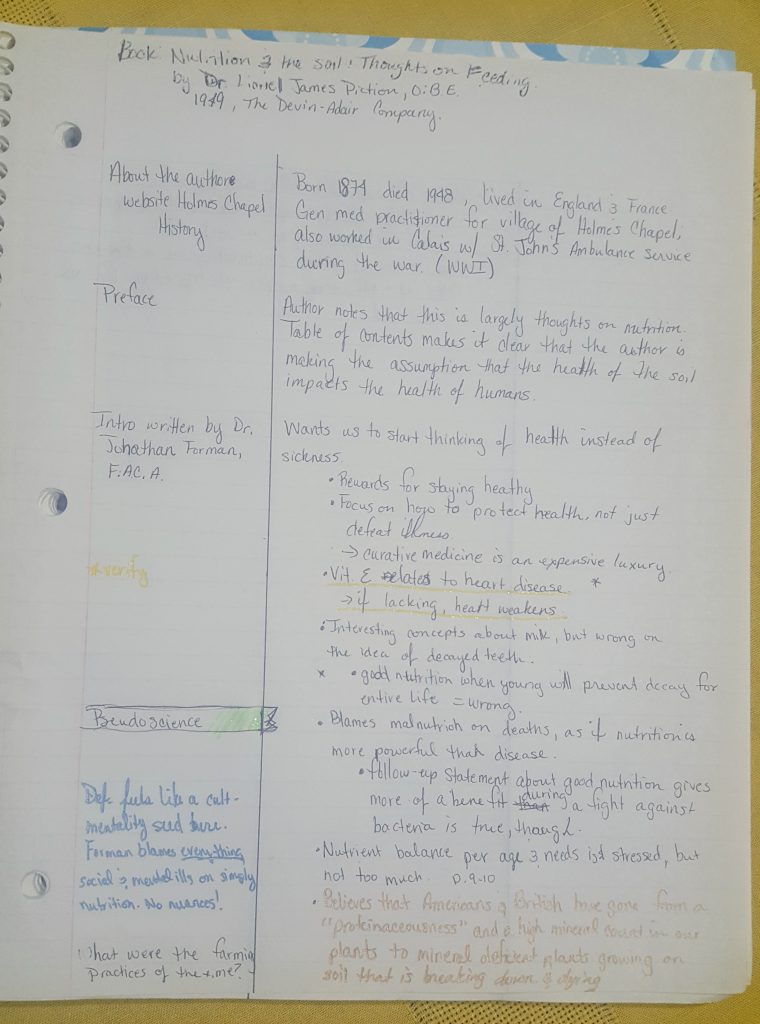 Book: Nutrition & the soil: Thoughts on Feeding.
by Dr. Lionel James Piction, O.B.E.
1949, The Devin-Adair Company.
About the author
website Holmes Chapel
History
Born 1874 died 1948, lived in England & France
Gen med practitioner for village of Holmes Chapel,
also worked in Calais w/ St. John's Ambulance Service
during the war. (WWI)
Preface
Author notes that this is largely thoughts on nutrition.
Table of contents makes it clear that the author is
making the assumption that the health of the soil
impacts the health of humans.
Intro written by Dr.
Johathan Forman,
F.A.C.A.
Wants us to start thinking of health instead of
sickness.
• Rewards for staying heathy
• Focus on how to protect health, not just
defeat illness
→ curative medicine is an expensive luxury.
*verify
• Vit. E relates to heart disease *
→ if lacking, heart weakens.
• Interesting concepts about milk, but wrong on
the idea of decayed teeth.
* • good nutrition when young will prevent decay for
entire life = wrong.
Pseudoscience *
• Blames malnutrion on deaths, as if nutrition is
more powerful than disease.
• follow-up statement about good nutrition gives
more of a benefit during a fight against
bacteria is true, though.
Defe feels like a cult-
mentality seed here.
Forman blames everything
social & mental ills on simply
nutrition. No nuances!
• Nutrient balance per age & needs is stressed, but
not too much. p. 9-10
• Believes that Americans & British have gone from a
"proteinaceousness" and a high mineral count in our
plants to mineral deficient plants growing on
soil that is breaking down & dying
What were the farming
practices of the time?